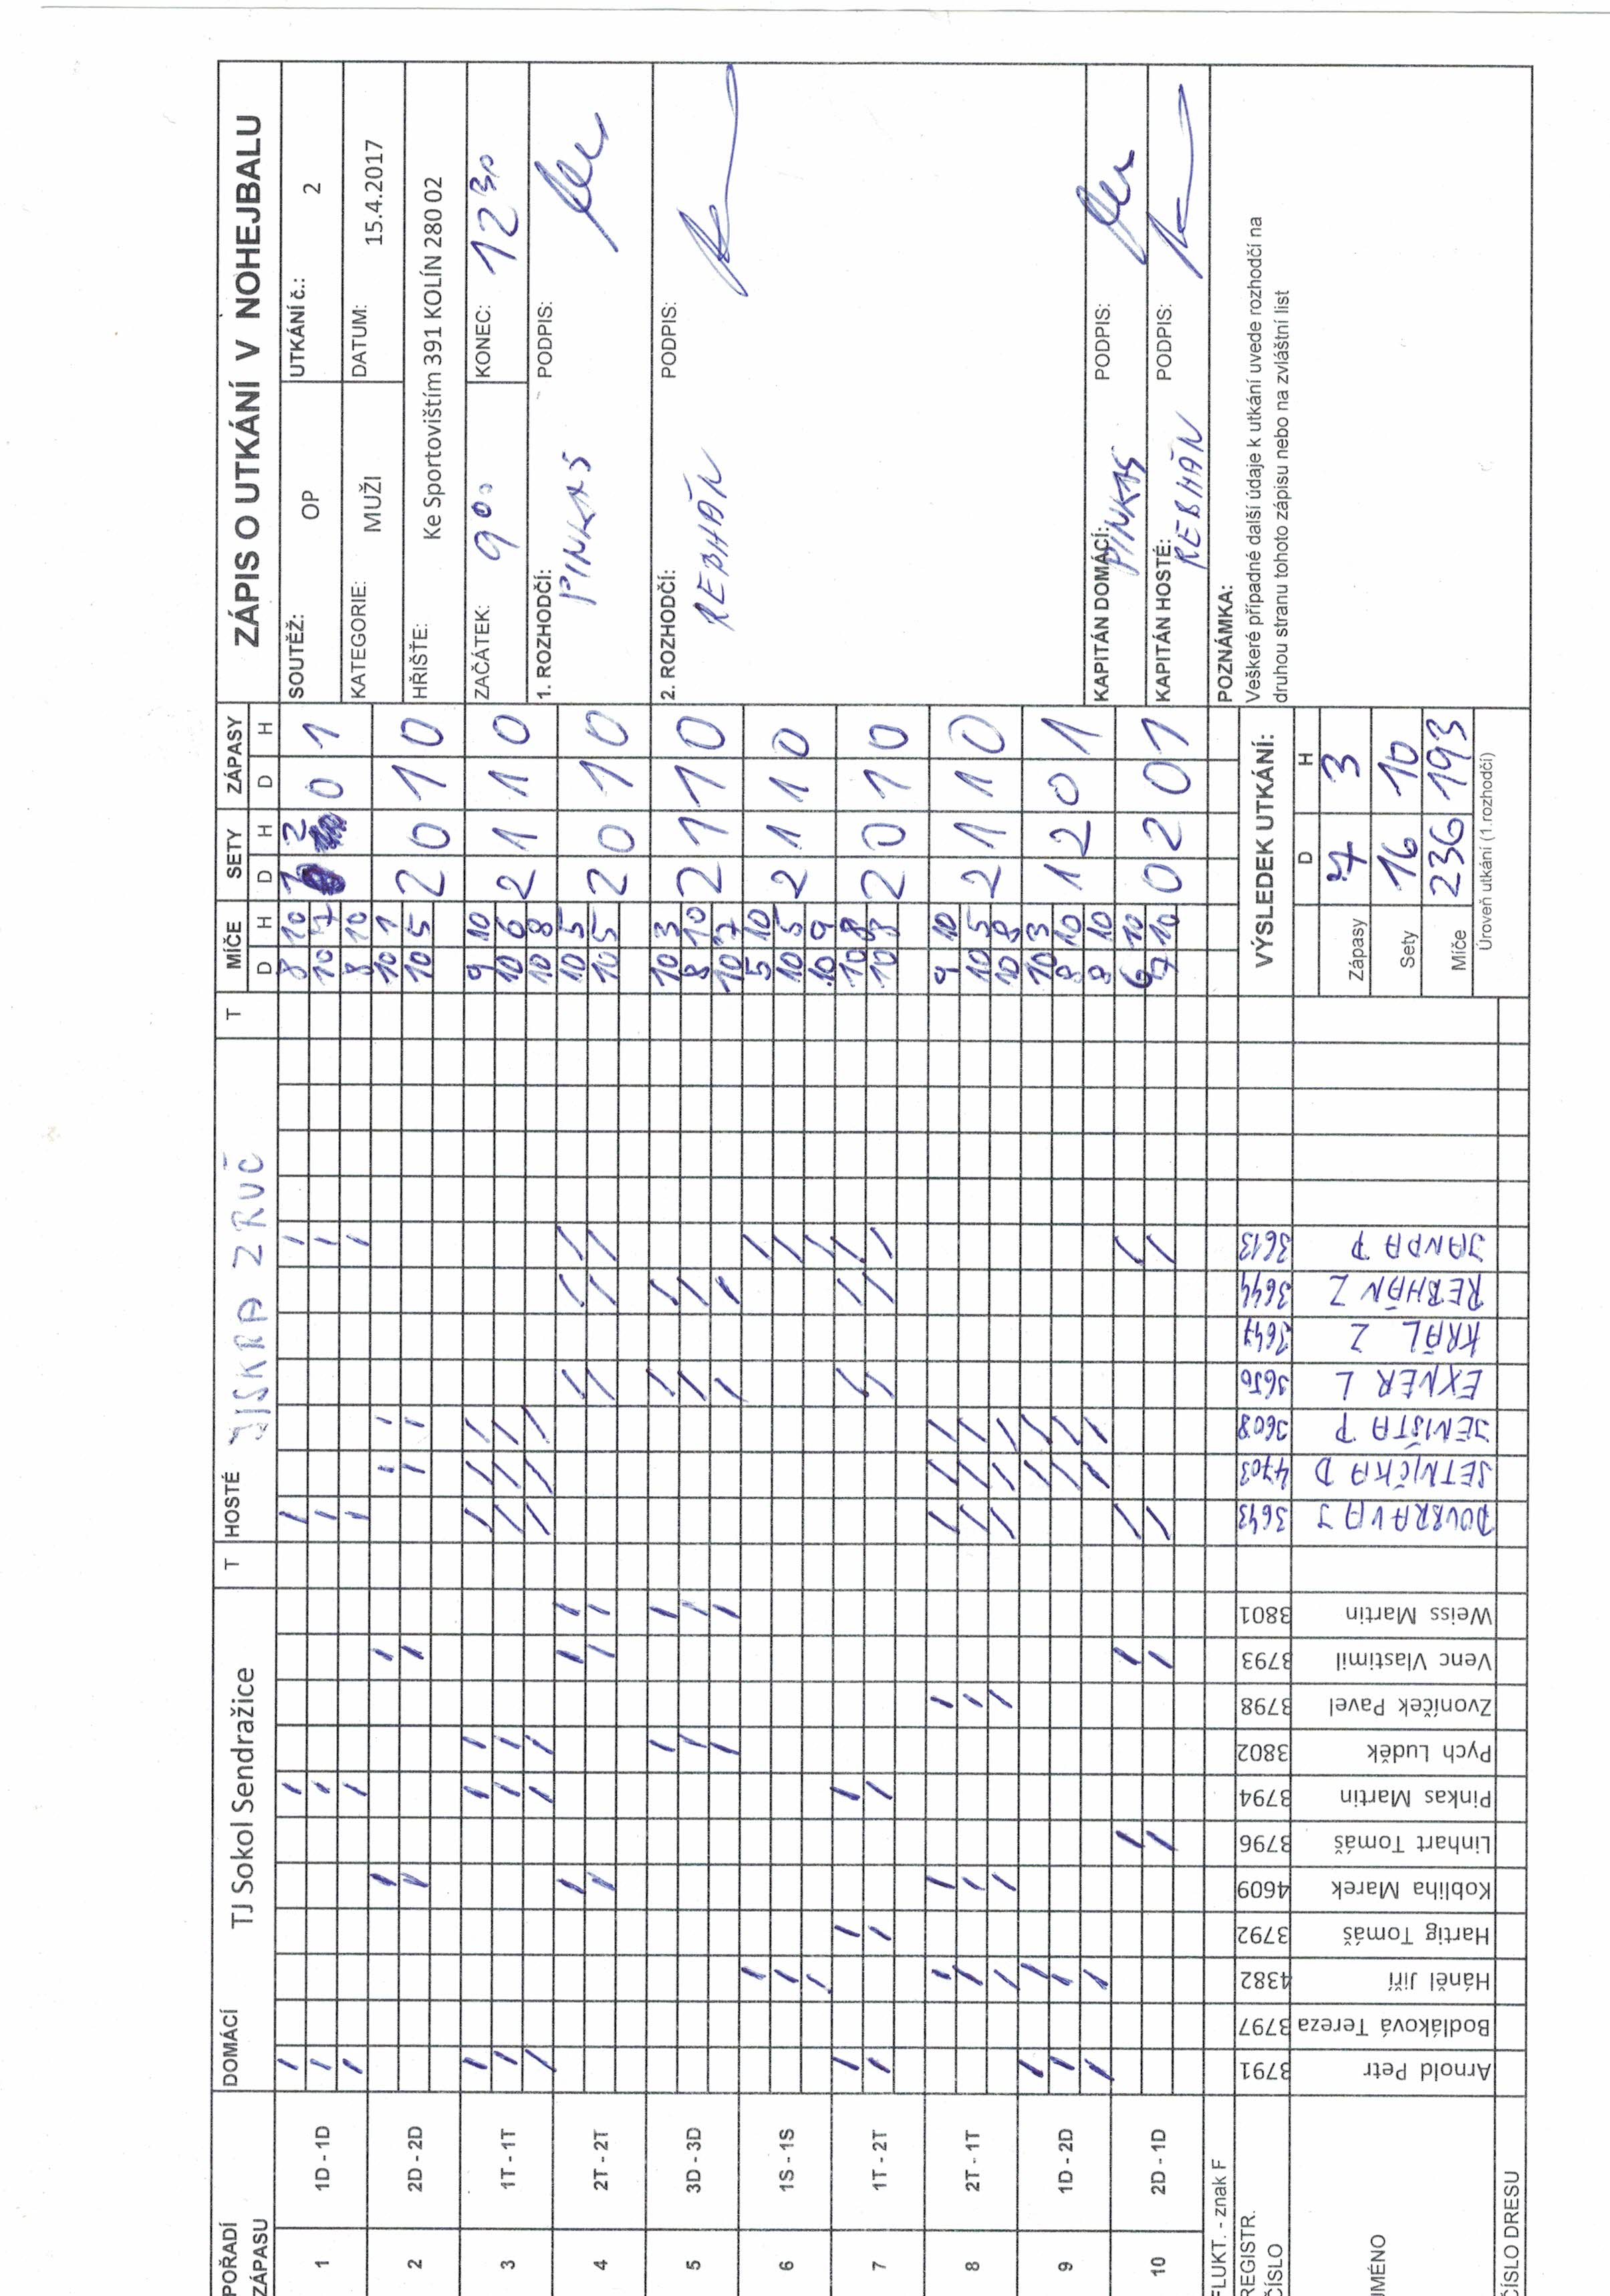 ZÁPIS O UTKÁNÍ V NOHEJBALU
SOUTĚŽ: OP UTKÁNÍ č.: 2
KATEGORIE: MUŽI DATUM: 15.4.2017
HŘIŠTĚ: Ke Sportovištím 391 KOLÍN 280 02
ZAČÁTEK: 9 00 KONEC: 12 30
1. ROZHODČÍ: PODPIS:
PINKAS
2. ROZHODČÍ: PODPIS:
REBHÁN
KAPITÁN DOMÁCÍ: PODPIS:
PINKAS
KAPITÁN HOSTÉ: PODPIS:
REBHÁN
POZNÁMKA:
Veškeré případné další údaje k utkání uvede rozhodčí na
druhou stranu tohoto zápisu nebo na zvláštní list
POŘADÍ ZÁPASU DOMÁCÍ TJ Sokol Sendražice T HOSTÉ JISKRA ZRUČ T MÍČE SETY ZÁPASY
D H D H D H
1 1D - 1D 8 10 1 2 0 1
10 7
8 10
2 2D - 2D 10 1 2 0 1 0
10 5
3 1T - 1T 9 10 2 1 1 0
10 6
10 8
4 2T - 2T 10 5 2 0 1 0
10 5
5 3D - 3D 10 3 2 1 1 0
8 10
10 7
6 1S - 1S 5 10 2 1 1 0
10 5
10 9
7 1T - 2T 10 8 2 0 1 0
10 8
8 2T - 1T 9 10 2 1 1 0
10 5
10 8
9 1D - 2D 10 3 1 2 0 1
8 10
9 10
10 2D - 1D 6 10 0 2 0 1
7 10
FLUKT. - znak F
REGISTR. ČÍSLO 3791 3797 4382 3792 4609 3796 3794 3802 3798 3793 3801 3643 4703 3608 3656 3647 3644 3613
JMÉNO
Arnold Petr
Bodláková Tereza
Háněl Jiří
Hartig Tomáš
Kobliha Marek
Linhart Tomáš
Pinkas Martin
Pych Luděk
Zvoníček Pavel
Venc Vlastimil
Weiss Martin
DOUBRAVA J
SETNIČKA D
JENIŠTA P
EXNER L
KRÁL Z
REBHÁN Z
JANDA P
ČÍSLO DRESU
VÝSLEDEK UTKÁNÍ:
D H
Zápasy 7 3
Sety 16 10
Míče 236 193
Úroveň utkání (1.rozhodčí)